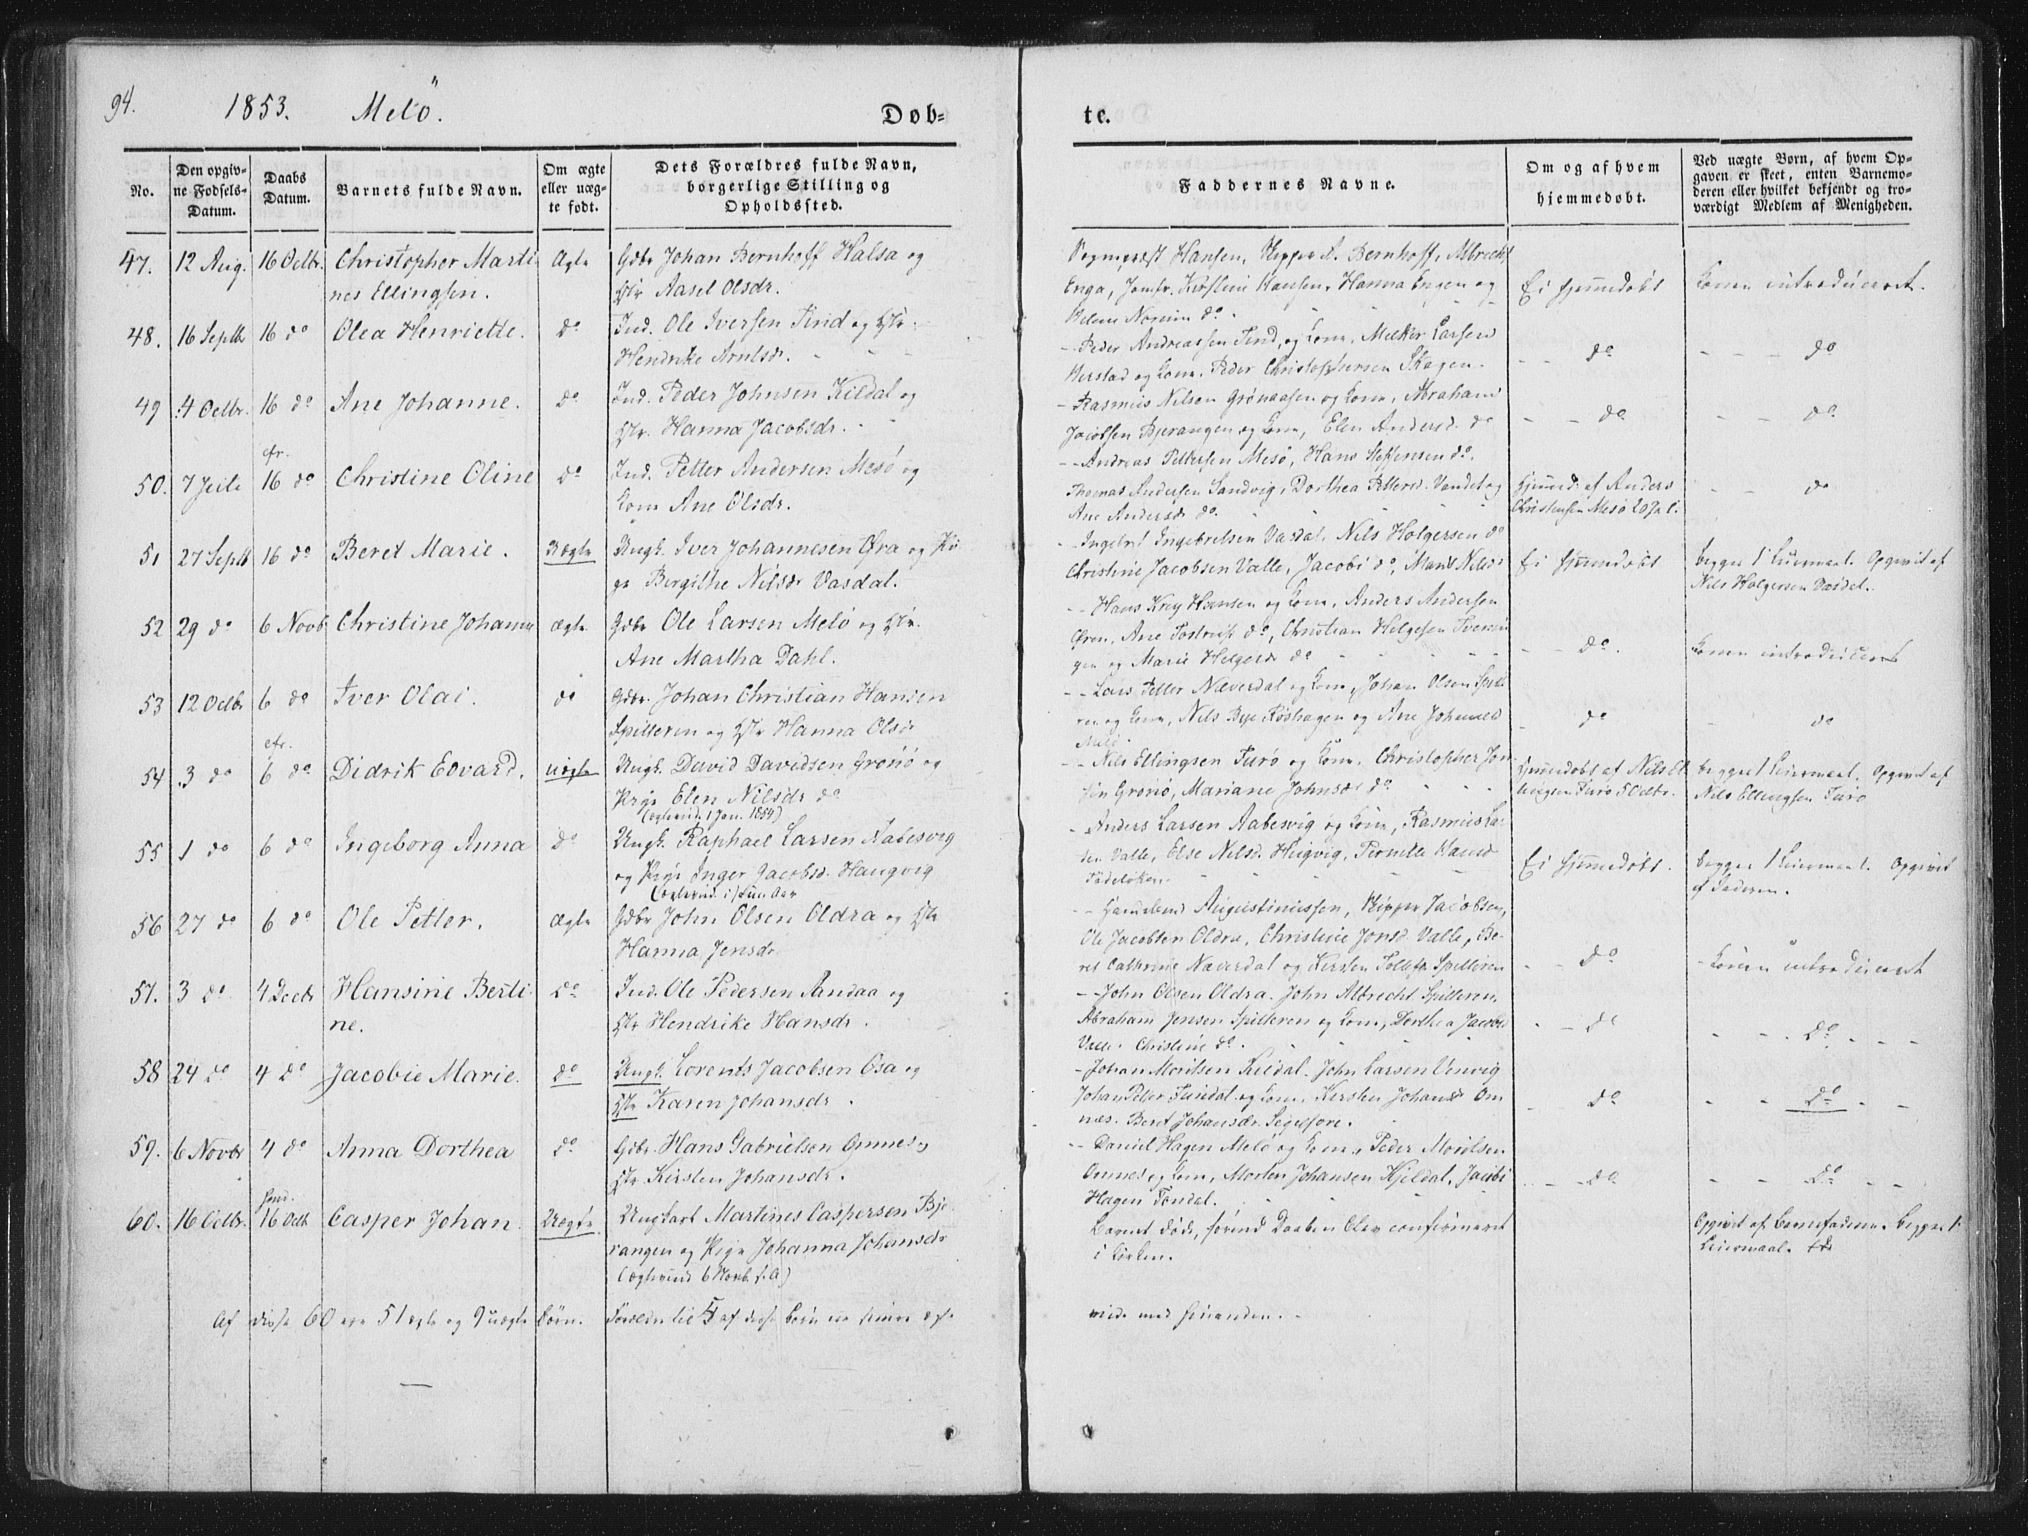 94.
1853. Melö.
Døb-
te.
No.
Den opgiv-
ne Fødsels-
Datum.
Daabs
Datum.
Barnets fulde Navn.
Om ægte
eller uæg-
te født.
Dets Forældres fulde Navn,
borgerlige Stilling og
Opholdssted.
Faddernes Navne.
Om og af hvem
hjemmedøbt.
Ved uægte Børn, af hvem Op-
gaven er skeet, enten Barnemo-
deren eller hvilket bekjendt og tro-
værdigt Medlem af Menigheden.
47. 12 Aug. 16 Octbr. Christopher Marti
nes Ellingsen.
Ægte
Gdbr Johan Bernhoff Halsa og
Hstr Aasel Olsdr.
Sogneprest Hansen, Skipper A. Bernhoff, Albrecht
Enga, Jomfr. Kirstine Hansen, Hanna Engen og
do.
Ei hjemmedøbt
Konen introduceret.
48. 16 Septbr 16 do Olea Henriette. do
Ind. Ole Iversen Tind og Hstr.
Hendrike Arntsdr.
Peder Andreassen Tind, og Kone, Melker Larsen
og Kone, Peder Christophersen Skagen.
do
do
49 4 Octbr. 16 do Ane Johanne. do
Ind. Peder Johnsen Kildal og
Hstr. Hanna Jacobsdr.
Rasmus Nilsen Grønaasen og Kone, Abraham
Jacobsen Bjerangen og Kone, Elen Andersd. do
do
do
50. 7 Juli efr. 16 do Christine Oline do
Ind. Petter Andersen Mesö og
Kone Ane Olsdr.
Andreas Pettersen Mesö, Hans Steffensen do,
Thomas Andersen Sandvig, Dorthea Pettersd. Vandet og
Ane Andersdr do.
Hjemmd. af Anders
Christensen Mesö 20 Juli.
do
51 27 Septb 16 do Beret Marie. Uægte
Ungk. Iver Johannesen Øra og Pi
ge Bergithe Nilsdr Vasdal.
Ingebret Ingebretsen Vasdal, Nils Holgersen do
Christine Jacobsen Valle, Jacobi do,
Ei hjemmedøbt
begges 1 Leiermaal. Opgivet af
Nils Holgersen Vasdal.
52 29 do 6 Novb Christine Johanne ægte
Gdbr Ole Larsen Melö og Hstr.
Ane Martha Dahl.
Hans Krey Hansen og Kone, Anders Andersen
Øren, Ane do, Christian Helgesen
gen og Marie Helgesdr do
do.
Konen introduceret
53 12 Octbr 6 do Iver Olai. do
Gdbr. Johan Christian Hansen
Spilderen og Hstr Hanna Olsdr
Lars Petter Næverdal og Kone, Johan Olsen Spild
ren og Kone, Nils Bye Røshagen og Ane Johansd
Melö.
do
do
54 3 do efr. 6 do Didrik Edvard. uægte
Ungk. David Davidsen Grønö og
Pige Elen Nilsdr do
(ægteviede 1 Jan. 1854)
Nils Ellingsen Turö og Kone, Christopher Jon
sen Grönö, Mariane Johnsdr do
Hjemmedøbt af Nils El
lingsen Turö 5 Octbr.
begges 1 Leiermaal. Opgivet af
Nils Ellingsen Turö
55 1 do 6 do Ingeborg Anna do
Ungk. Raphael Larsen Aabesvig
og Pige Inger Jacobsd. Haugvig
Anders Larsen Aabesvig og Kone, Rasmus La
Valle, Else Nilsd. Haugvig, Pernille Hansd
Ei hjemmedøbt.
begges 1 Leiermaal. Opgivet
af Faderen.
56 27 do 6 do Ole Petter. Ægte
Gdbr John Olsen Oldra og Hstr
Hanna Jensdr
Augustinussen, Skipper Jacobsen,
Ole Jacobsen Oldra, Christine Jonsd Valle, Be-
ret Cathrine Næverdal og Kirsten Tollefs. Spilderen
do
Konen introduceret
57. 3 do 4 Decbr Hansine Berti
ne.
do
Ind. Ole Pedersen Aandaa og
Hstr Hendrike Hansdr.
John Olsen Oldra, John Albrecht Spilderen,
Abraham Jensen Spilderen og Kone, Dorthea Jacobsd
Valle. Christine do.
do
do
58 24 do 4 do Jacobie Marie. do
Ungk. Lorents Jacobsen Osa og
Hstr Karen Johansdr.
Johan Moritsen Kildal, John Larsen Venvig
Johan Petter og Kone, Kirsten Johansdr Om
næs. Beret Johansdr Segelfore.
do
do
59. 6 Novbr 4 do Anna Dorthea do
Gdbr. Hans Gabrielsen Omnes
Hstr. Kirsten Johansdr.
Daniel Hagen Melö og Kone, Peder Moritsen
Omnes og Kone, Morten Johansen Kjeldal, Jacobi
Hagen Tondal.
do
do
60. 16 Octbr. 16 Octb Casper Johan. Uægte
Ungkarl Martines Caspersen Bje
rangen og Pige Johanna Johansdr
(ægteviede 6 Novb. s.A)
Barnet døde, forend Daaben blev confirmeret
i Kirken.
Opgivet af Barnefaderen. begges 1ste
Leiermaal.
Af disse 60 ere 51 ægte og 9 uægte Børn. Forældre til 5 af disse Børn ere senere ægte
viede med hinanden.